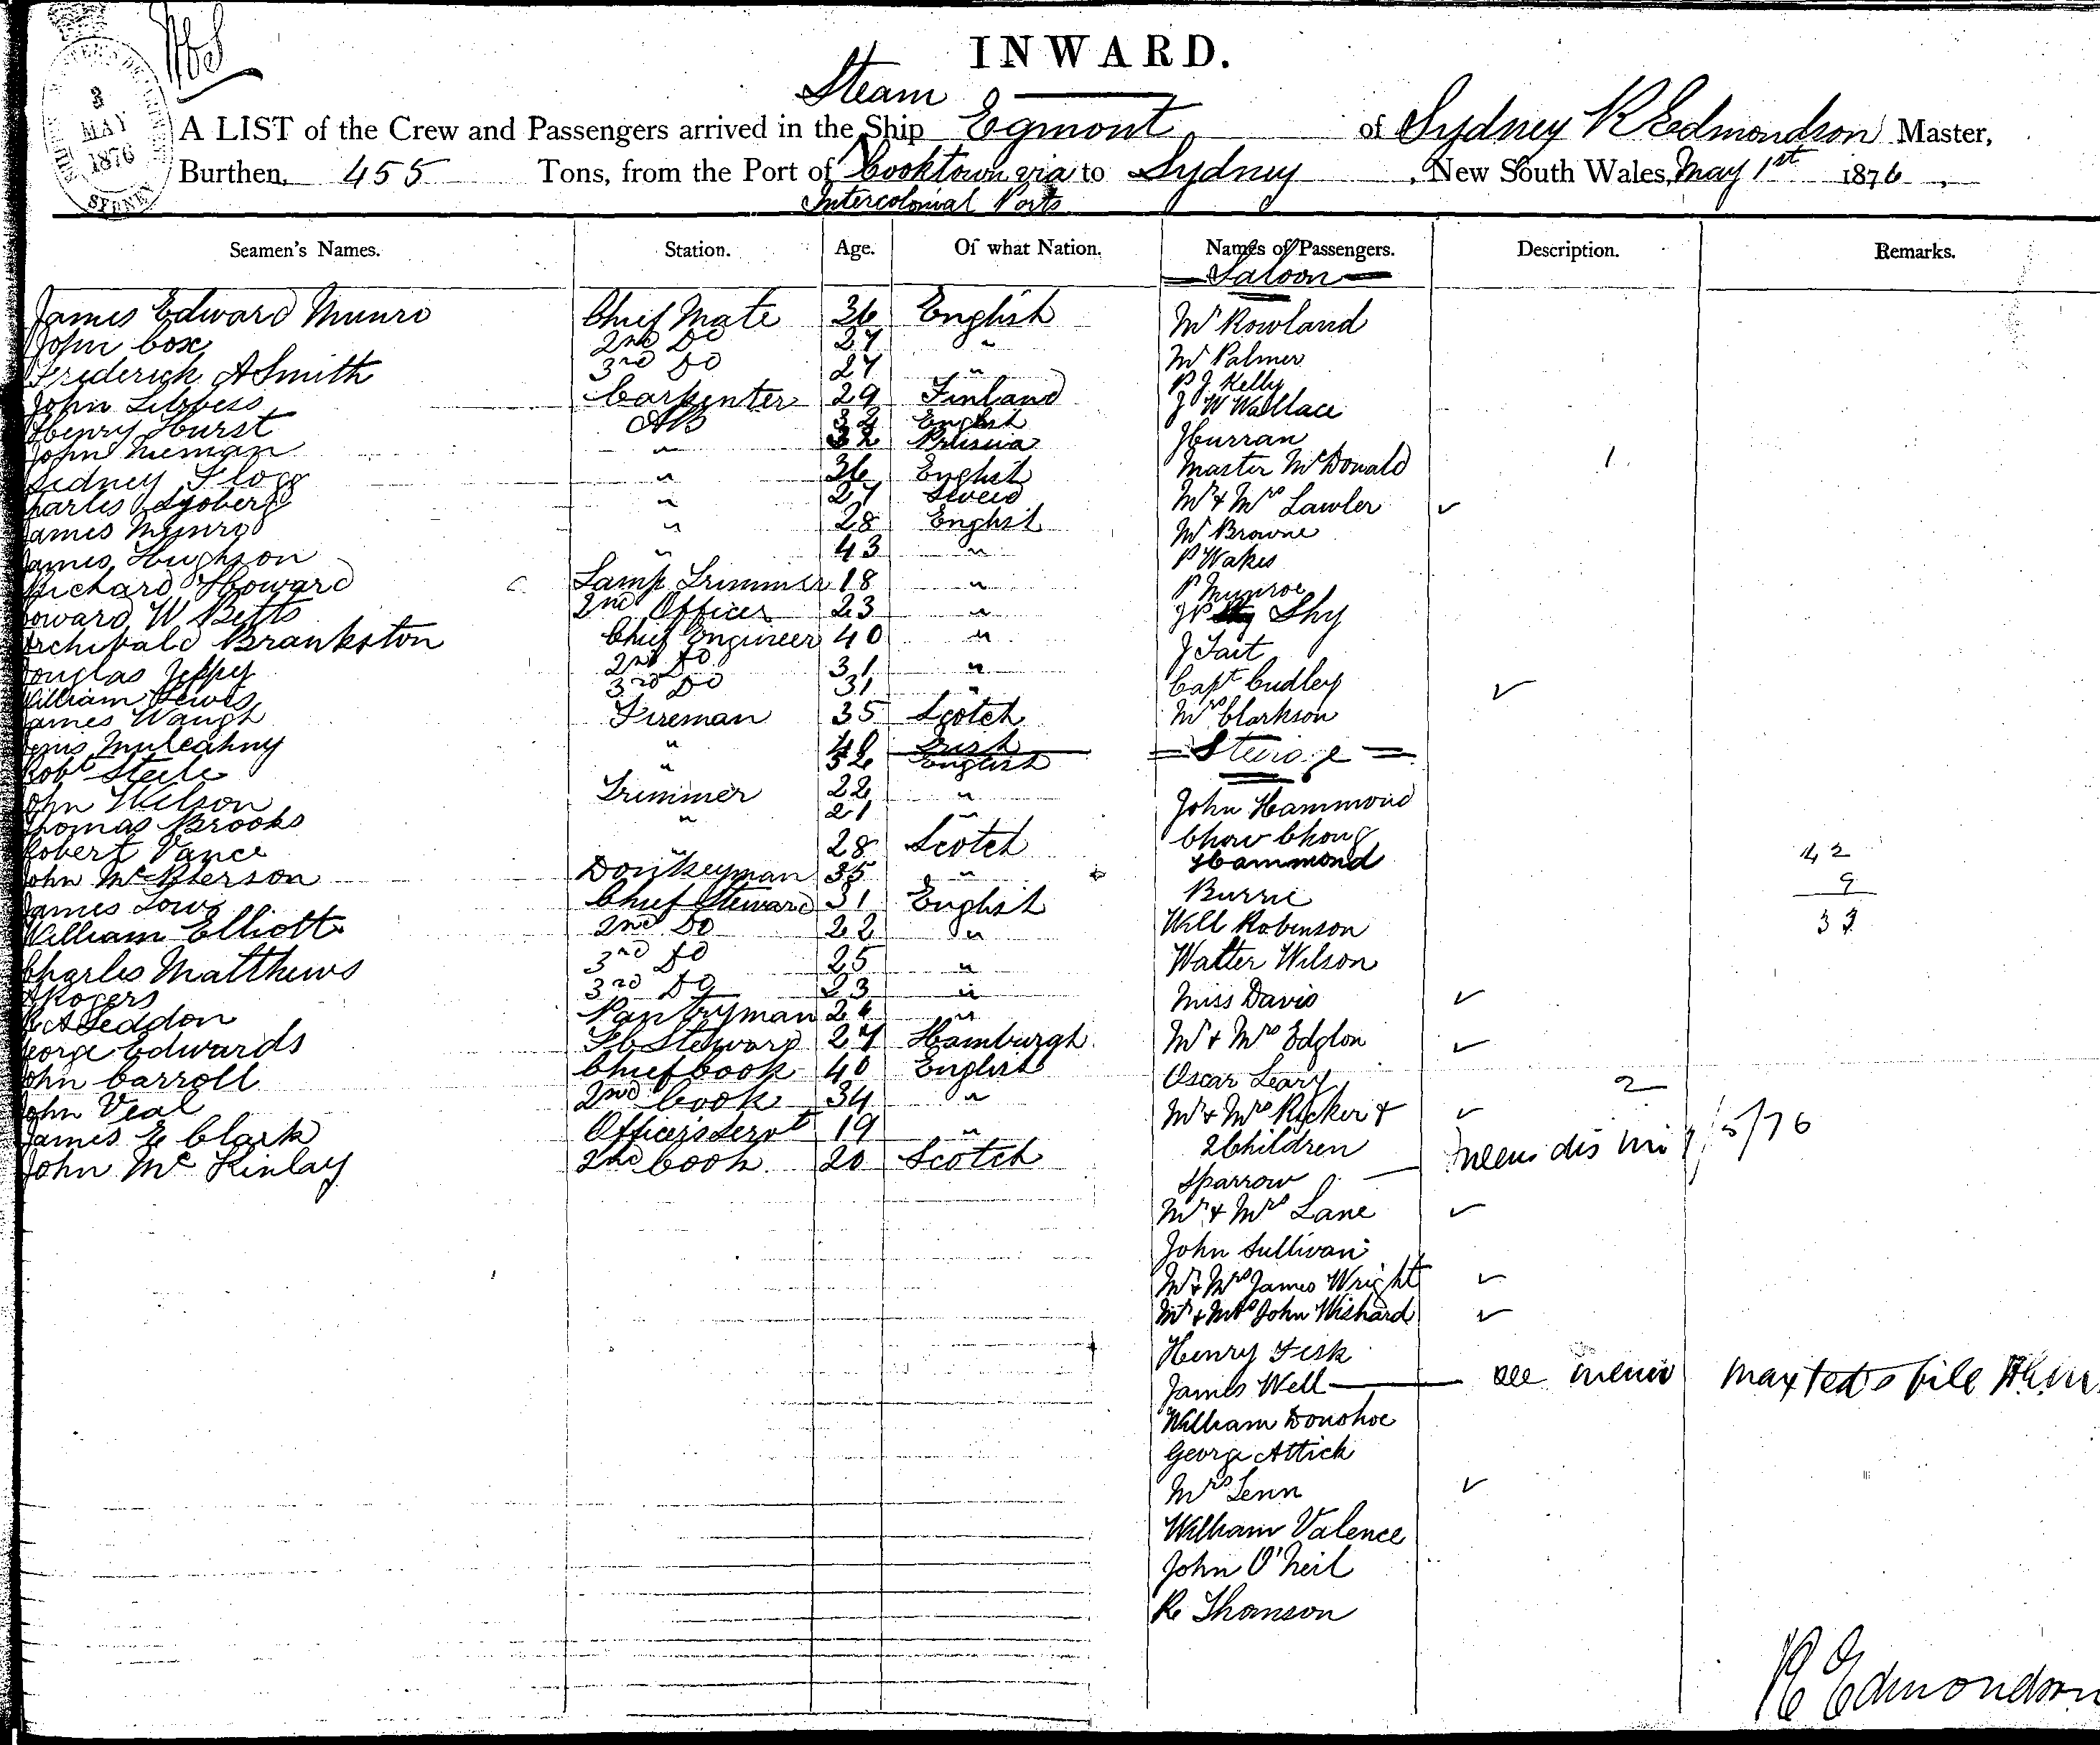 INWARD.
Steam
A LIST of the Crew and Passengers arrived in the Ship Egmont of Sydney R Edmondson Master,
Burthen, 455 Tons, from the Port of Cooktown via to Sydney, New South Wales, May 1st 1876,
Intercolonial Ports
3
MAY
1876
SYDNEY
Seamen's Names. Station. Age. Of what Nation. Names of Passengers. Description. Remarks.
Saloon
James Edward Munro Chief Mate 36 English Mr Rowland
John Cox 2nd Do 27 " Mr Palmer
Frederick A Smith 3rd Do 27 " P J Kelly
John Libbess Carpenter 29 Finland J W Wallace
Henry Hurst AB 32 English J Curran
John Nieman " 32 Prussia Master McDonald 1
Sidney Flogg " 36 English Mr & Mrs Lawler ✓
Charles Syoberg " 27 Sweed Mr Browne
James Munro " 28 English P Wakes
James Hughson " 43 " P Munroe
Richard Howard Lamp Trimmer 18 " Shy
W Betts 2nd Officer 23 " J Tait
Archibald Brankston Chief Engineer 40 " Capt Cudley ✓
Douglas Jeffry 2nd Do 31 " Mrs Clarkson
William Lewis 3rd Do 31 "
James Waugh Fireman 35 Scotch
Mulcahny " 40 Irish Steirage
Robt Steele " 32 English
John Wilson Trimmer 22 " John Hammond
Thomas Brooks " 21 " Chow Chong
Robert Vance " 28 Scotch Hammond 42
John McPherson Donkeyman 35 " Burrie 9
James Low Chief Steward 31 English Will Robinson 33
William Elliott 2nd Do 22 " Walter Wilson
Charles Matthews 3rd Do 25 " Miss Davis ✓
A Rogers 3rd Do 23 " Mr & Mrs Edglon ✓
A Seddon Pantryman 24 " Oscar Leary 2
George Edwards Steward 27 Hamburgh Mr & Mrs Rycker & ✓
John Carroll Chief Cook 40 English 2 Children
John Veal 2nd Cook 34 " Sparrow
James E Clark Officers Servt 19 " Mr & Mrs Lane ✓
John McKinlay 2nd Cook 20 Scotch John Sullivan
Mr & Mrs James Wright ✓
Mr & Mrs John Wishard ✓
Henry Fisk
James Well see memo Maxted's file
William Donohoe
George Attick
Mrs Lenn ✓
William Valence
John O'Neil
R Thomson
R Edmondson